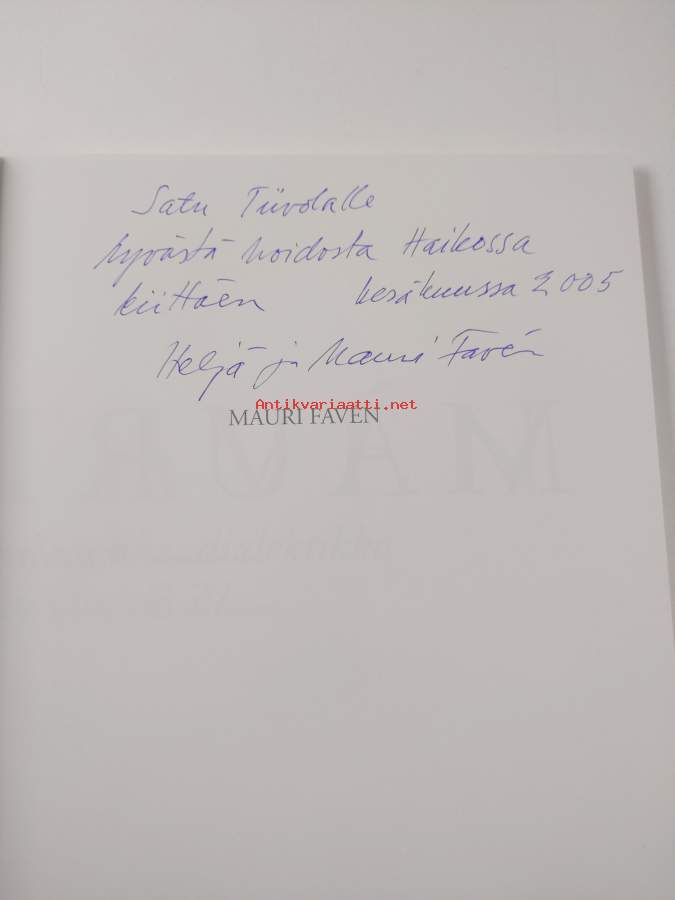 Satu Tiivolalle
hyvästä hoidosta Haikossa
kiittäen kesäkuussa 2005
Heljä ja Mauri Favén
Antikvariaatti.net
MAURI FAVÉN